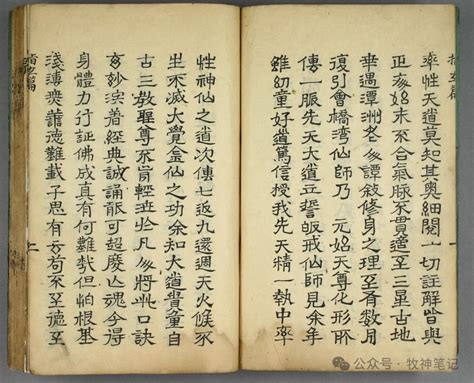 率性天道莫知其奥細閱一切註解皆與
正亥始末不合氣脉不貫適至三星古地
幸遇潭洲老叟譚敘修身之理至有數月
復引會橋湾仙師乃 元始天尊化形所
傳一脈先天大道立誓皈戒仙師見余年
雖幼童好道篤信授我先天精一執中率
性神仙之道次傳七返九還週天火候不
生不滅大覺金仙之功余知大道貴重自
古三教聖尊不肯輕泄於凡將此口訣
玄妙著經典誠誦能可超度亡魂今得
身體力行証佛成真有何難哉但怕根基
淺薄無善德難載子思有云苟不至德至
上
公众号·牧神笔记